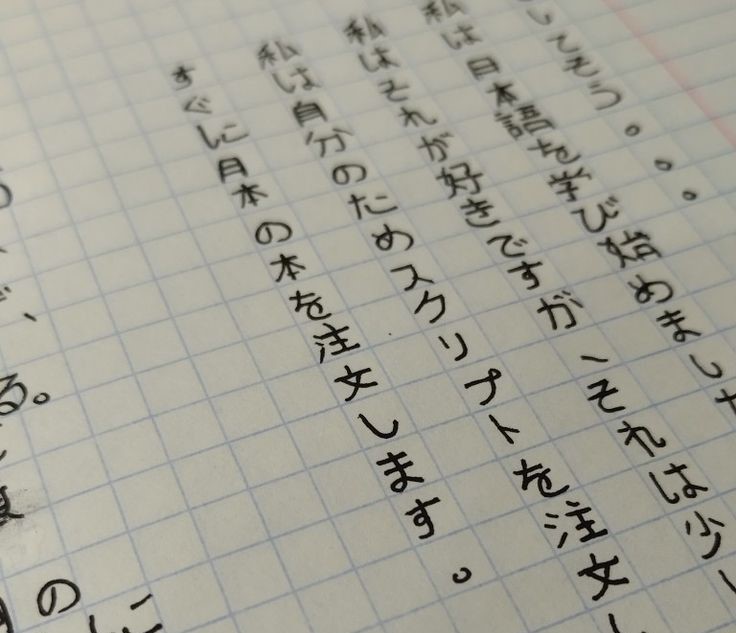 してそう。。。
私は日本語を学び始めました
私はそれが好きですが、それは少し
私は自分のためスクリプトを注文し
すぐに日本の本を注文します。